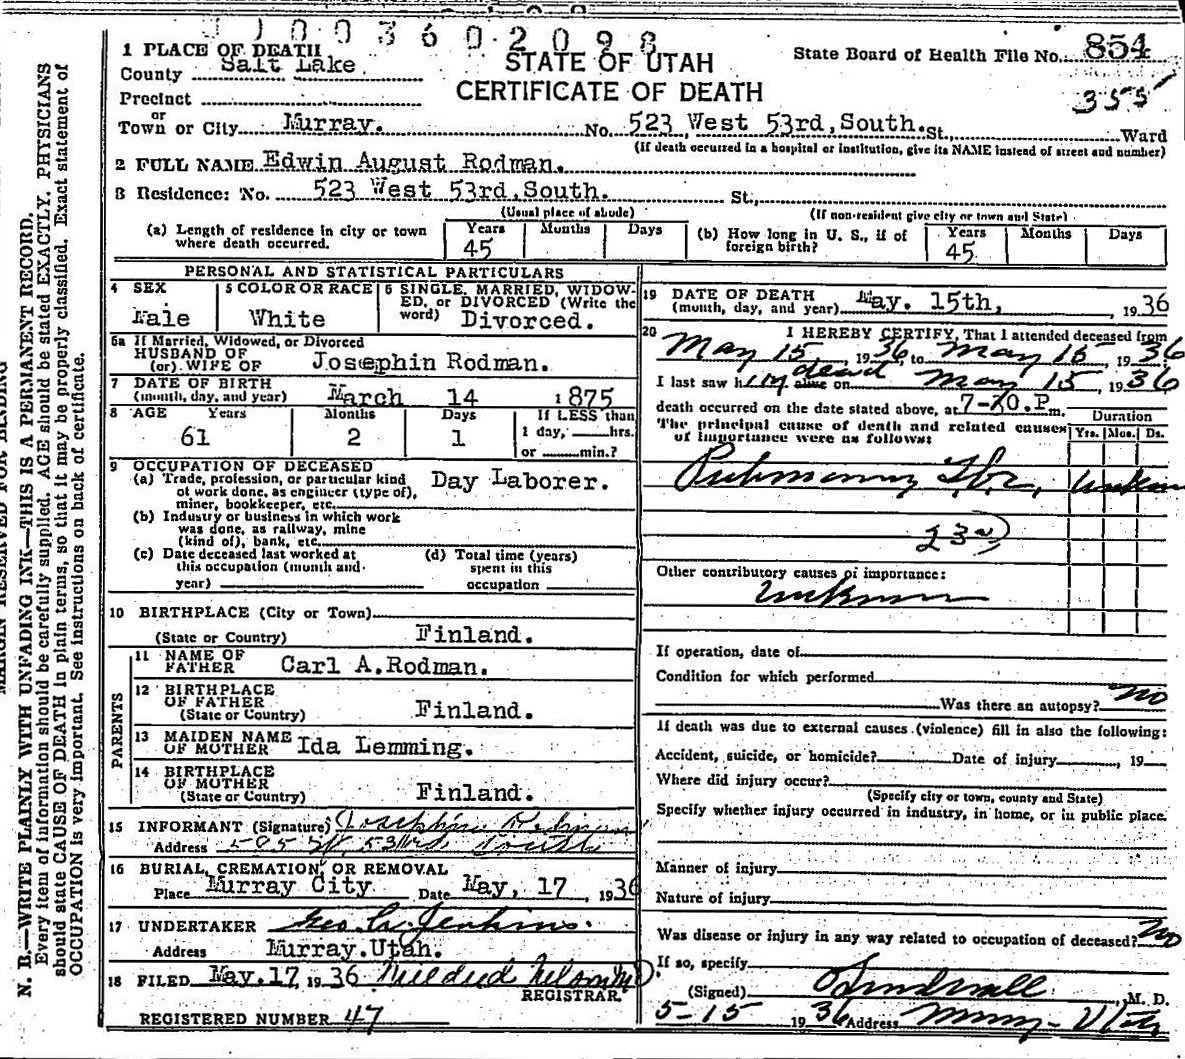 1 1 0 0 3 6 0 2 0 9 8
1 PLACE OF DEATH
County Salt Lake
STATE OF UTAH
CERTIFICATE OF DEATH
State Board of Health File No. 854
355
Precinct
or
Town or City Murray. No. 523 West 53rd, South. St., Ward
(If death occurred in a hospital or institution, give its NAME instead of street and number)
2 FULL NAME Edwin August Rodman.
3 Residence: No. 523 West 53rd, South. St.,
(Usual place of abode) (If non-resident give city or town and State)
(a) Length of residence in city or town where death occurred. Years 45 Months Days
(b) How long in U. S., if of foreign birth? Years 45 Months Days
PERSONAL AND STATISTICAL PARTICULARS
4 SEX Male
5 COLOR OR RACE White
6 SINGLE, MARRIED, WIDOWED, or DIVORCED (Write the word) Divorced.
5a If Married, Widowed, or Divorced
HUSBAND OF
(or) WIFE OF Josephin Rodman.
7 DATE OF BIRTH
(month, day, and year) March 14 1875
8 AGE Years 61 Months 2 Days 1 If LESS than 1 day, hrs. or min.?
9 OCCUPATION OF DECEASED
(a) Trade, profession, or particular kind of work done, as engineer (type of), miner, bookkeeper, etc. Day Laborer.
(b) Industry or business in which work was done, as railway, mine (kind of), bank, etc.
(c) Date deceased last worked at this occupation (month and year)
(d) Total time (years) spent in this occupation
10 BIRTHPLACE (City or Town)
(State or Country) Finland.
PARENTS
11 NAME OF FATHER Carl A. Rodman.
12 BIRTHPLACE OF FATHER
(State or Country) Finland.
13 MAIDEN NAME OF MOTHER Ida Lemming.
14 BIRTHPLACE OF MOTHER
(State or Country) Finland.
15 INFORMANT (Signature) Josephine Rodman
Address 53rd South
16 BURIAL, CREMATION, OR REMOVAL
Place Murray City Date May, 17, 1936
17 UNDERTAKER Geo. A. Jenkins.
Address Murray. Utah.
18 FILED May. 17 1936 Mildred Nelson MD.
REGISTRAR.
REGISTERED NUMBER 47
19 DATE OF DEATH
(month, day, and year) May. 15th, 1936
20 I HEREBY CERTIFY, That I attended deceased from
May 15, 1936, to May 15 1936
I last saw him dead alive on May 15, 1936
death occurred on the date stated above, at 7-20.P m.
The principal cause of death and related causes of importance were as follows:
Duration
Yrs. Mos. Ds.
Pulmonary Tbc, unknown
23a
Other contributory causes of importance:
Unknown
If operation, date of
Condition for which performed
Was there an autopsy? no
If death was due to external causes (violence) fill in also the following:
Accident, suicide, or homicide? Date of injury , 19
Where did injury occur?
(Specify city or town, county and State)
Specify whether injury occurred in industry, in home, or in public place.
Manner of injury
Nature of injury
Was disease or injury in any way related to occupation of deceased? No
If so, specify
(Signed) , M. D.
5-15 1936 Address Murray-Utah
MARGIN RESERVED FOR BINDING
N. B.—WRITE PLAINLY WITH UNFADING INK—THIS IS A PERMANENT RECORD.
Every item of information should be carefully supplied. AGE should be stated EXACTLY. PHYSICIANS
should state CAUSE OF DEATH in plain terms, so that it may be properly classified. Exact statement of
OCCUPATION is very important. See instructions on back of certificate.